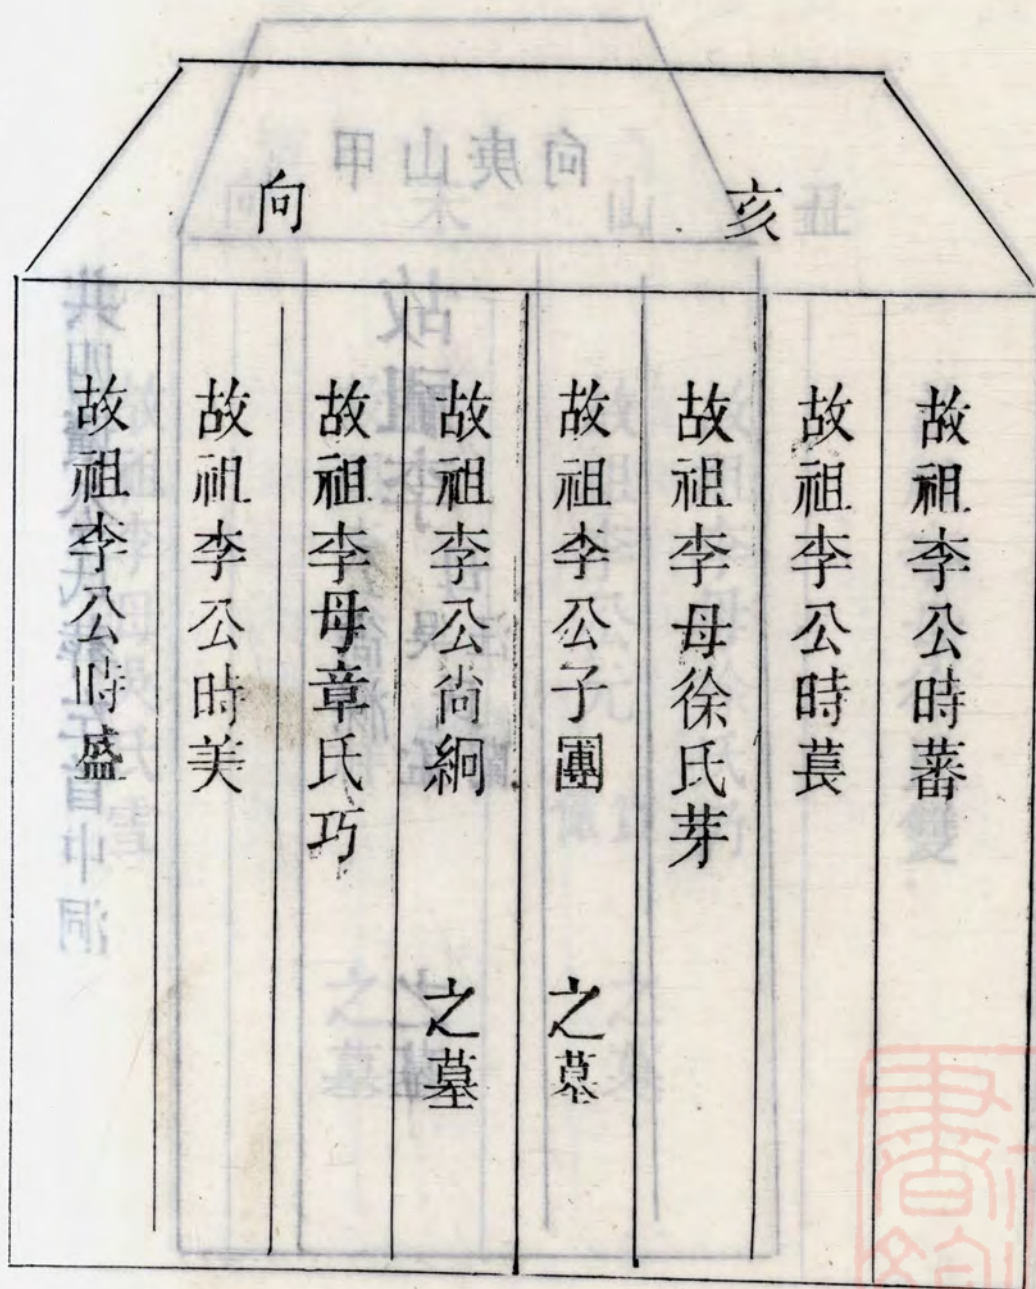 亥向
故祖李公時蕃
故祖李公時萇
故祖李母徐氏芽
故祖李公子團之墓
故祖李公尚絅之墓
故祖李母章氏巧
故祖李公時美
故祖李公時盛